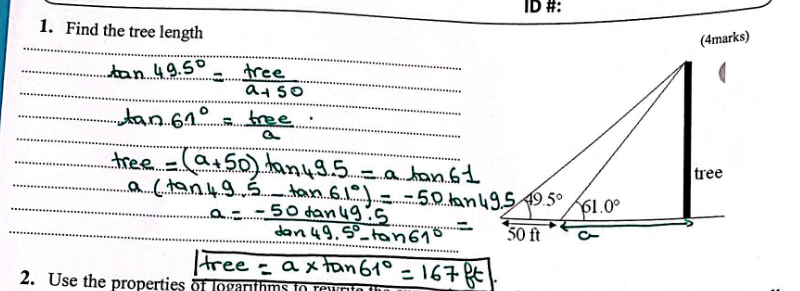 ID #:
1. Find the tree length
(4marks)
tan 49.5° = tree / a+50
tan 61° = tree / a
tree = (a+50) tan49.5 = a tan61
a (tan49.5 - tan61°) = -50 tan49.5
a = -50 tan49.5 / tan49.5°-tan61° =
tree = a x tan61° = 167 ft.
49.5°
61.0°
tree
50 ft
a
2. Use the properties of logarithms to rewrite the